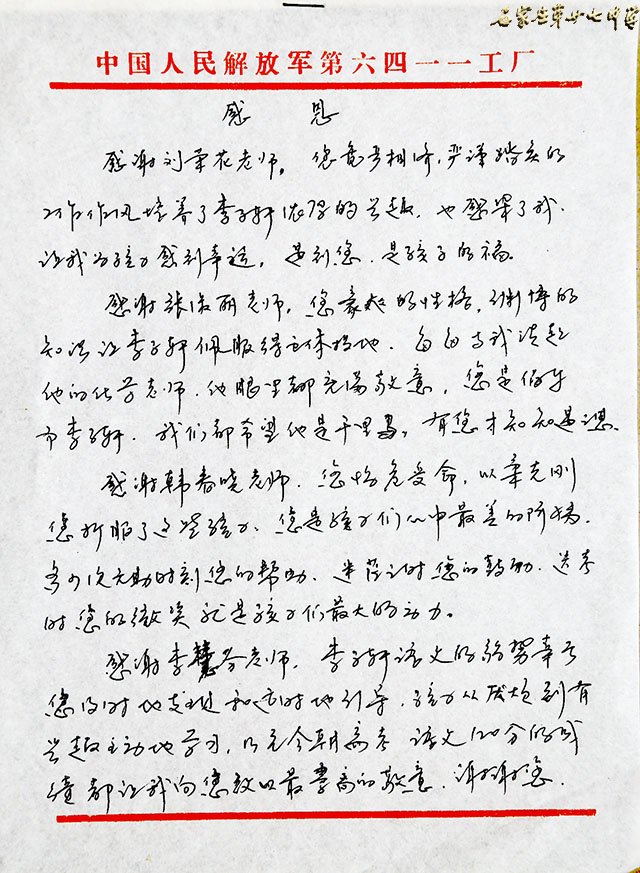 石家庄第廿七中学
中国人民解放军第六四一一工厂
感 恩
感谢刘荣花老师。您宽严相济,严谨踏实的
工作作风培养了李子轩浓厚的兴趣,也感染了我.
让我为孩子感到幸运,遇到您.是孩子的福。
感谢张俊丽老师,您豪爽的性格,渊博的
知识让李子轩佩服得五体投地.每每与我谈起
他的化学老师.他眼里都充满敬意,您是伯乐
而李子轩.我们都希望他是千里马,有您才知知遇之恩.
感谢韩春晓老师.您临危受命,以柔克刚
您折服了这些孩子.您是孩子们心中最美的
多少次无助时刻您的帮助.迷茫之时您的鼓励.迷考
时您的微笑就是孩子们最大的动力。
感谢李慧芬老师,李子轩语文的弱势幸亏
您及时地发现和适时地引导.孩子从厌烦到有
兴趣主动地学习,以至今朝高考 语文120分的成
绩都让我向您致以最崇高的敬意.谢谢您.